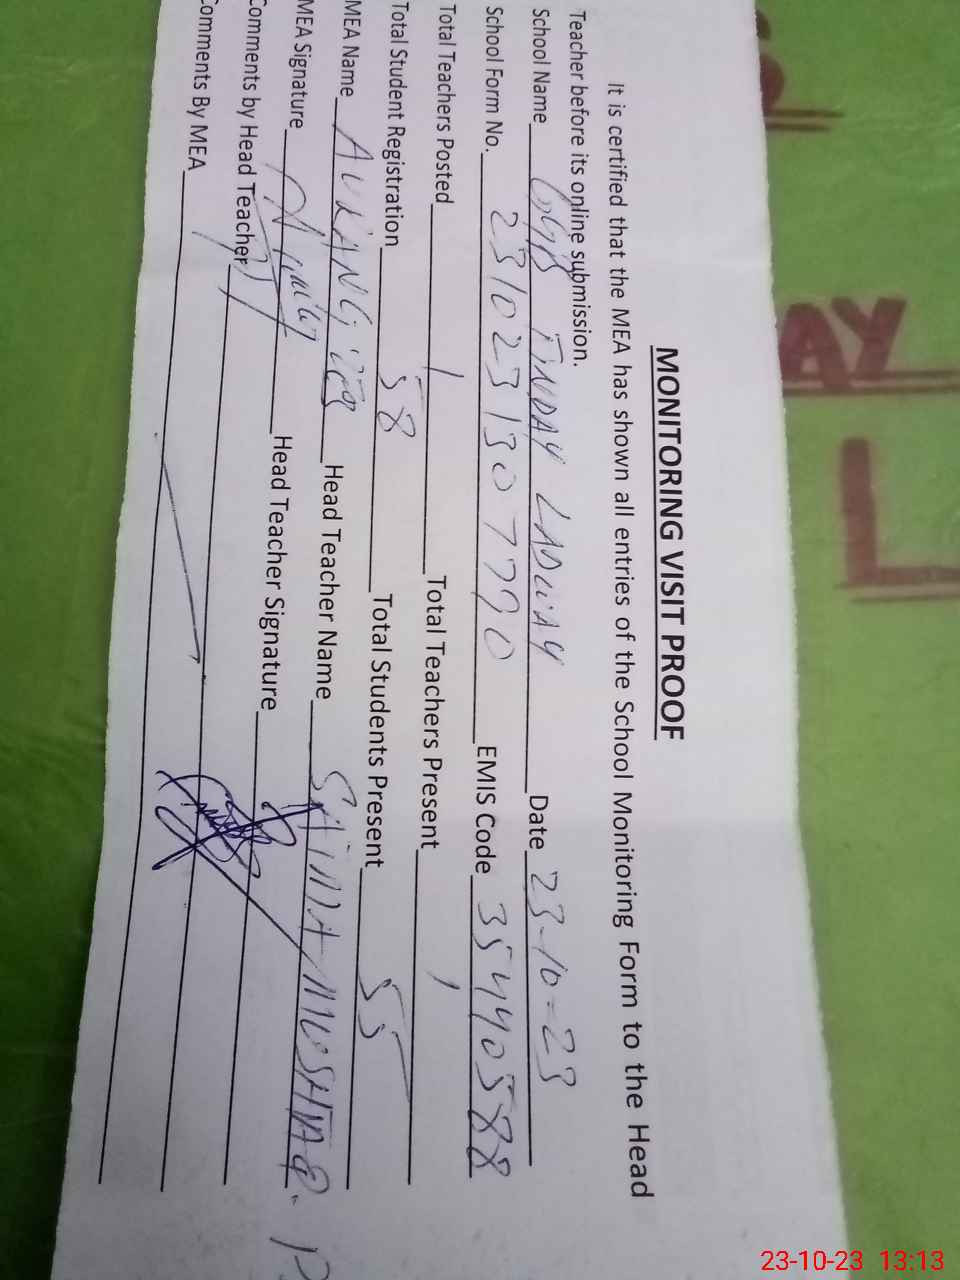 MONITORING VISIT PROOF
It is certified that the MEA has shown all entries of the School Monitoring Form to the Head
Teacher before its online submission.
School Name TINDAY Date 23-10-23
School Form No. 2310231307790 EMIS Code 35440588
Total Teachers Posted 1 Total Teachers Present 1
Total Student Registration 58 Total Students Present 55
MEA Name Head Teacher Name SAIMA MUSHTAQ.
MEA Signature Head Teacher Signature
Comments by Head Teacher
Comments By MEA
AY
L
23-10-23 13:13